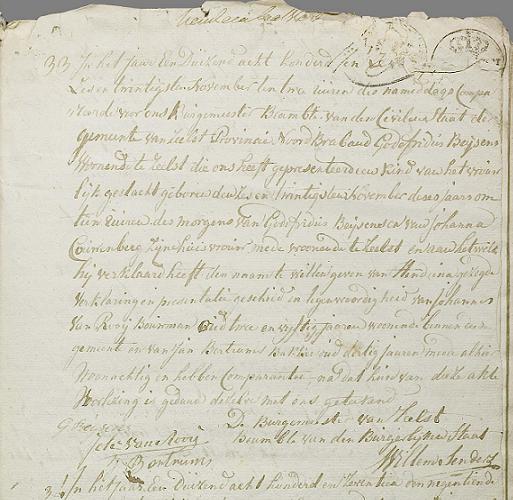 33 In het jaar Een duizend acht honderd
Zes en twintigsten November ten twee uuren des namiddags Compa
reerde voor ons Burgemeester Beambte van den Civilen Staat der
gemeente van Zeelst Provincie Noord Braband Godefridus Beijsens
Woonende te Zeelst die ons heeft gepresenteerd een Kind van het vrouw
lijk geslacht geboren den Zes en twintigsten November deses jaars om
tien uuren des morgens van Godefridus Beijsens en van Johanna
zijne huisvrouw mede woonende te Zeelst en aan hetwelk
hij verklaard heeft den naam te willen geven van Hendrina gezegde
verklaring en presentatie geschied in tegenwoordigheid van Johannes
van Rooij Bouwman Oud twee en vijftig jaaren woonende binnen deese
gemeente en van Jan Bertrums Bakker oud dertig jaaren mede alhier
Woonachtig en hebben Comparanten na dat hun van deeze akte
Voorlezing is gedaan dezelve met ons getekend
De Burgemeester van Zeelst
Joh: van Rooij Beambte van den Burgerlijken Staat
J Bertrums Willem Senders
34 In het jaar Een Duizend acht honderd en Zeventien den negentiende